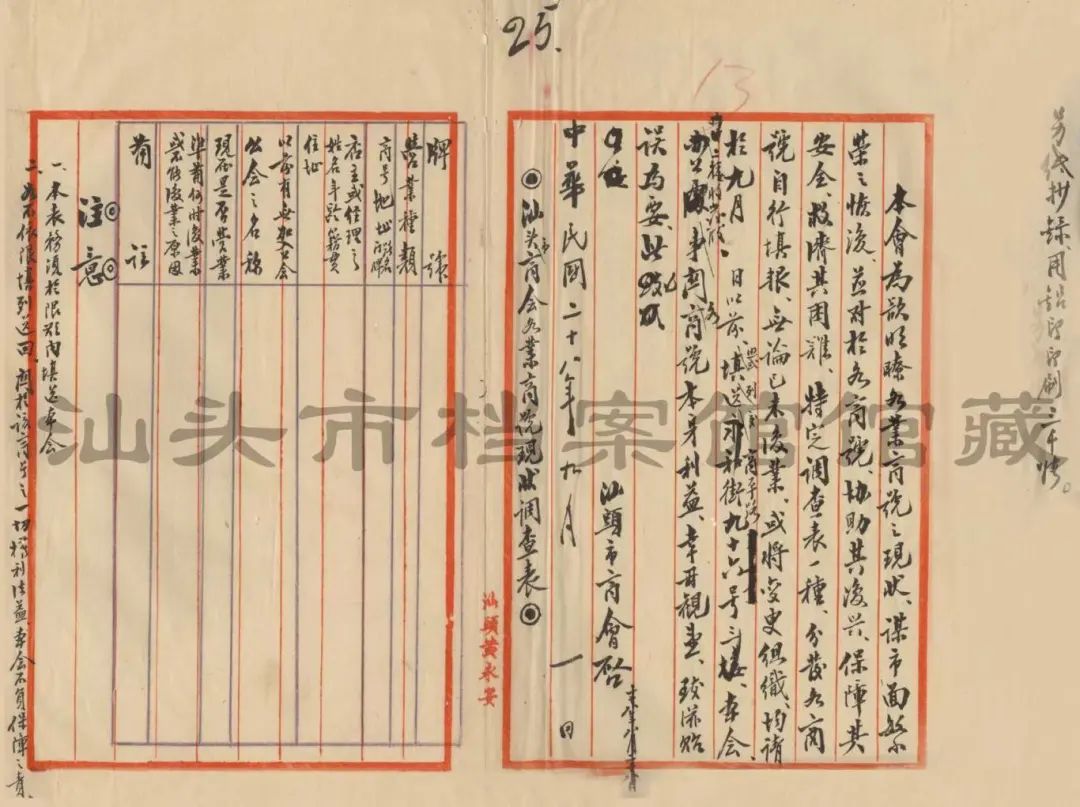 25.
13
另紙抄錄、用鉛印印刷三千張。
本會為欲明瞭各業商號之現狀、謀市面繁
榮之恢復、並對於各商號、協助其復興、保障其
安全、救濟其困難、特定調查表一種、分發各商
號自行填報、無論已未復業、或將變更組織、均請
於九月 日以前、填送 街九十六号三樓、本會
商平路
事關商號本身利益、幸毋觀望、致滋貽
誤為要、此
汕頭市商會啟
中華民國二十八年九月一日
◉汕头市商会各業商號現狀調查表◉
牌號
營業種類
商号地址
店主或經理之
姓名年齡籍貫
住址
以前有無加入公会
公会之名称
現在是否營業
準備何時復業
或不能復業之原因
備註
注意
一、本表務須於限期內填送本会
二、如不依限填列送回、關於該商号之一切權利法益本会不負保障之責、
汕頭黃永安
汕头市档案馆馆藏